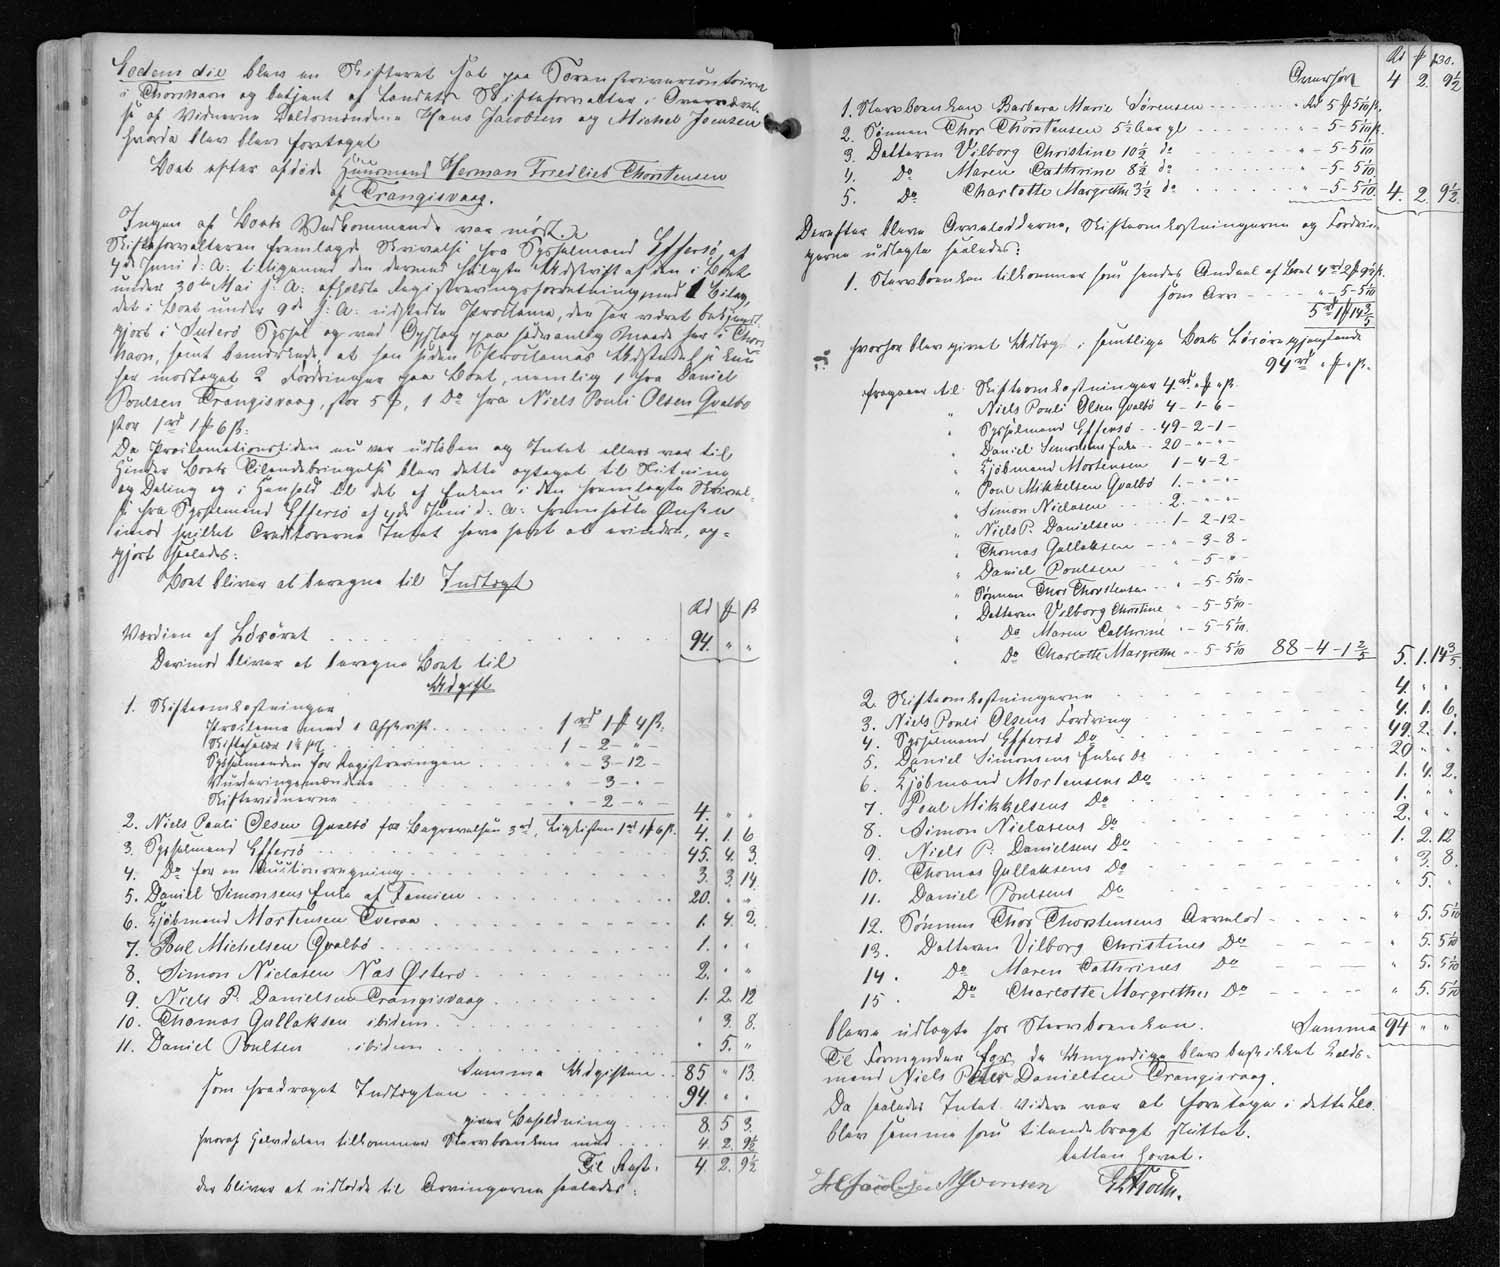 Eodem die blev en Skifteret sat paa Sorenskrivercontoiret
i Thorshavn og betjent af Landets Skifteforvalter i Overværel-
se af Vidnerne Kaldsmændene Hans Jacobsen og Michel Joensen
hvorda blev foretaget
Boet efter afdøde Huusmand Herman Friedlieb Thorstensen
af Trangisvaag.
Ingen af Boets Vedkommende var mødt.
Skifteforvalteren fremlagde Skrivelse fra Sysselmand Effersø af
4de Juni d: A: tilligemed den dermed fulgte Udskrift af den i Boet
under 30te Mai s: A: afholdte Registreringsforretning med 1 Bilag,
det i Boet under 9de s: A: udstedte Proclama, der har været bekjendt-
gjort i Suderø Syssel og ved Opslag paa sædvanlig Maade her i Thors
havn, samt bemærkede, at han siden Proclamas Udstedelse kun
har modtaget 2 Fordringer paa Boet, nemlig 1 fra Daniel
Poulsen Trangisvaag, stor 5 ₰, 1 Do fra Niels Pouli Olsen Qvalbø
stor 1 rd 1 ₰ 6 ß.
Da Proclamationstiden nu var udløben og Intet ellers var til
Hinder Boets Tilendebringelse blev dette optaget til Slutning
og Deling og i Henhold til det af Enken i den fremlagte Skrivel-
se fra Sysselmand Effersø af 4de Juni d: A: fremsatte Ønske
imod hvilket Creditorerne Intet have havt at erindre, op-
gjort saaledes:
Boet bliver at beregne til Indtægt
Rd ₰ ß
Værdien af Løsøret 94. " "
Derimod bliver at beregne Boet til
Udgift
1. Skifteomkostninger
Proclama med 1 Afskrift 1 rd 1 ₰ 4 ß.
Skiftesalær 1 1/2 pCt 1 - 2 - " -
Sysselmanden for Registreringen " - 3 - 12 -
Vurderingsmændene " - 3 - " -
Skiftevidnerne " - 2 - " - 4. " "
2. Niels Pouli Olsen Qvalbø for Begravelsen 3 rd, Ligkisten 1 rd 1 ₰ 6 ß. 4. 1. 6
3. Sysselmand Effersø 45. 4. 3.
4. Do for en Auctionsregning 3. 3. 14.
5. Daniel Simonsens Enke af Famien 20. " "
6. Kjøbmand Mortensen Tveraa 1. 4. 2.
7. Poul Michelsen Qvalbø 1. " "
8. Simon Nielasen Næs Østerø 2. " "
9. Niels P. Danielsen Trangisvaag 1. 2. 12
10. Thomas Gullaksen ibidem " 3. 8.
11. Daniel Poulsen ibidem " 5. "
Summa Udgiften 85 " 13.
som fradraget Indtægten 94. " "
giver Beholdning 8. 5 3.
hvoraf Halvdelen tilkommer Stervboenken med 4 2. 9½
Til Rest. 4. 2. 9½
der bliver at udlodde til Arvingerne saaledes:
130.
Rd ₰ ß
Overført 4 2. 9½
1. Stervboenken Barbara Marie Sørensen Rd 5 ₰ 5 1/10 ß.
2. Sønnen Thor Thorstensen 5½ Aar gl " - 5 - 5 1/10 ß.
3. Datteren Vilborg Christine 10½ do " - 5 - 5 1/10
4. Do Maren Cathrine 8½ do " - 5 - 5 1/10.
5. Do Charlotte Margrethe 3½ do " - 5 - 5 1/10. 4. 2. 9½
Derefter bleve Arvelodderne, Skifteomkostningerne og Fordrin
gerne udlagte saaledes:
1. Stervboenken tilkommer som hendes Andeel af Boet 4 rd 2 ₰ 9½ ß.
som Arv " - 5 - 5 1/10
5 rd 1 ₰ 14 3/5
hvorfor blev givet Udlæg i samtlige Boets Løsøregjenstande
94 rd " ₰ " ß.
fragaaer til: Skifteomkostninger 4 rd " ₰ " ß.
" Niels Pouli Olsen Qvalbø 4 - 1 - 6 -
" Sysselmand Effersø 49 - 2 - 1 -
" Daniel Simonsens Enke 20 - " - " -
" Kjøbmand Mortensen 1 - 4 - 2 -
" Poul Mikkelsen Qvalbø 1. - " - " -
" Simon Nielasen 2. - " - " -
" Niels P. Danielsen 1 - 2 - 12 -
" Thomas Gullaksen " - 3 - 8 -
" Daniel Poulsen " - 5 - " -
" Sønnen Thor Thorstensen " - 5 - 5 1/10 -
" Datteren Vilborg Christine " - 5 - 5 1/10 -
" Do Maren Cathrine " - 5 - 5 1/10.
" Do Charlotte Margrethe " - 5 - 5 1/10 88 - 4 - 1 2/5 5. 1. 14 3/5
2. Skifteomkostningerne 4. " "
3. Niels Pouli Olsens Fordring 4. 1. 6.
4. Sysselmand Effersø Do 49. 2. 1.
5. Daniel Simonsens Enkes Do 20 " "
6. Kjøbmand Mortensens Do 1. 4. 2.
7. Poul Mikkelsens Do 1. " "
8. Simon Nielasens Do 2. " "
9. Niels P. Danielsens Do 1. 2. 12
10. Thomas Gullaksens Do " 3. 8.
11. Daniel Poulsens Do " 5. "
12. Sønnen Thor Thorstensens Arvelod " 5. 5 1/10
13. Datteren Vilborg Christines Do " 5. 5 1/10
14. Do Maren Cathrines Do " 5. 5 1/10
15. Do Charlotte Margrethes Do " 5. 5 1/10
bleve udlagte hos Stervboenken. Summa 94 " "
Til Formynder for de Umyndige blev beskikket Kalds-
mand Niels Peter Danielsen Trangisvaag.
Da saaledes Intet videre var at foretage i dette Bo
blev samme som tilendebragt sluttet.
Retten hævet.
H Jacobsen M Joensen